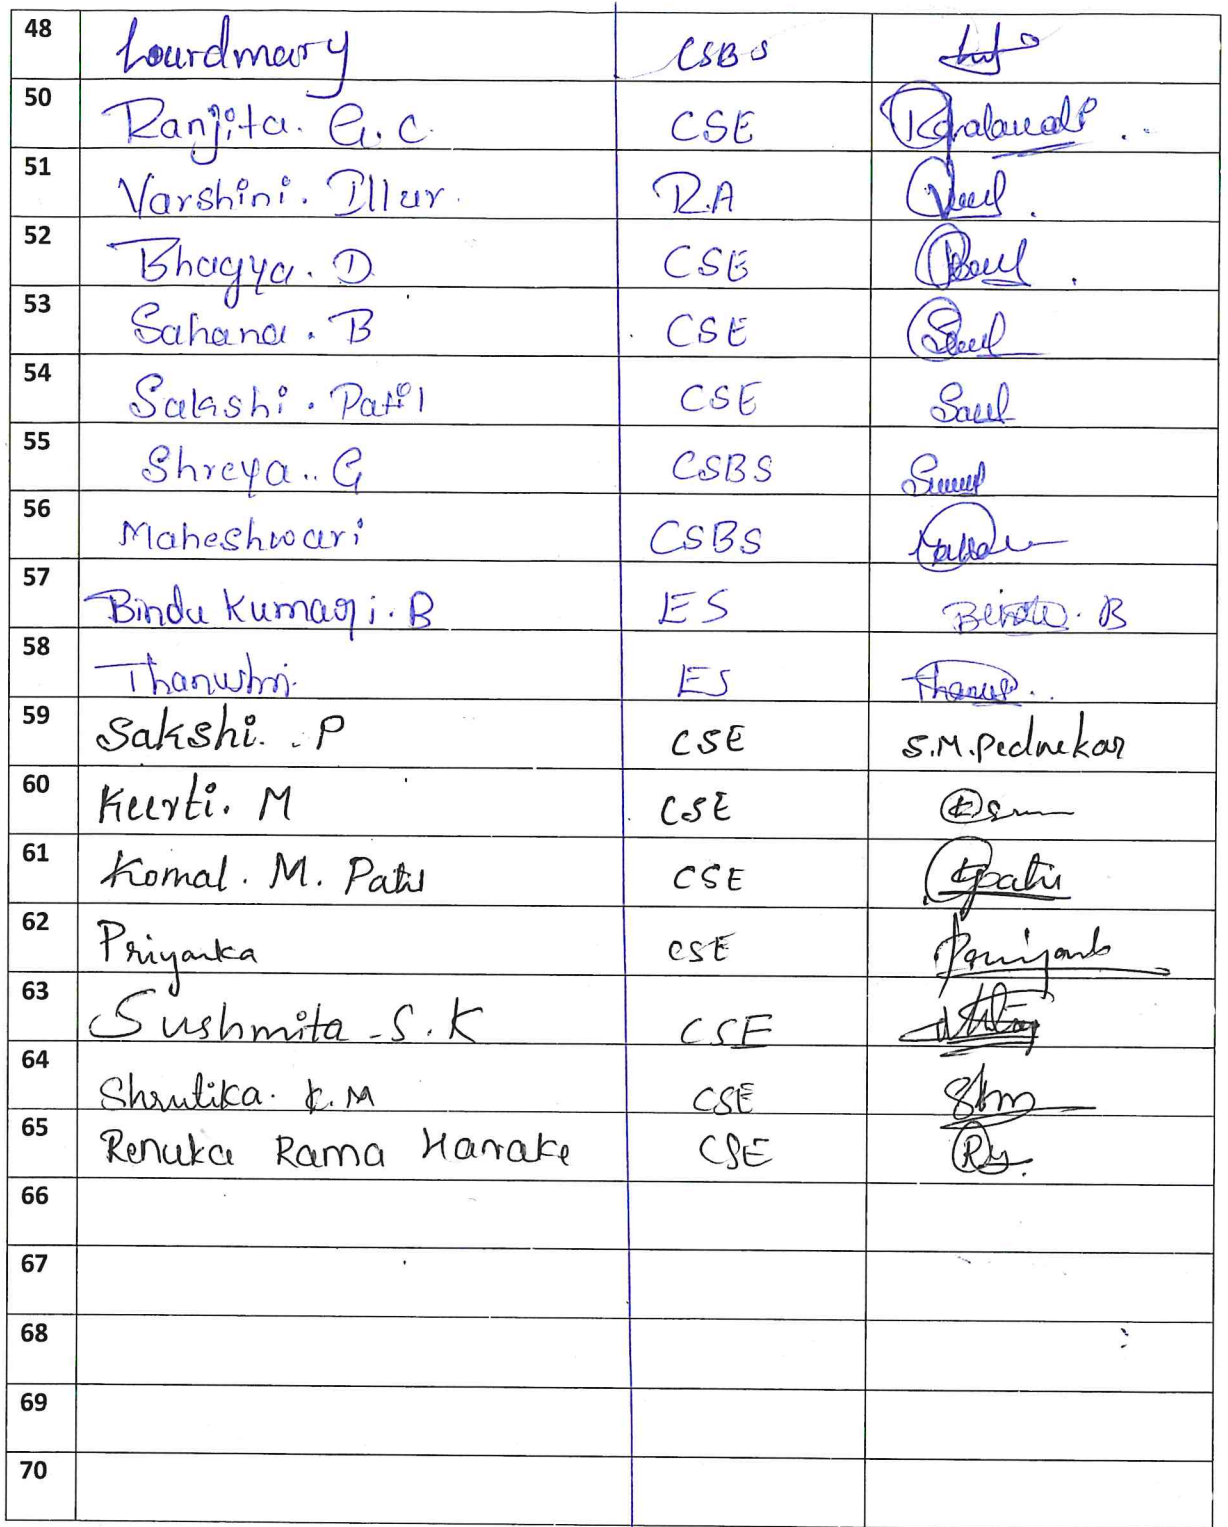 48 Lourdmary CSBS
50 Ranjita. G. C. CSE
51 Varshini. Illur. RA
52 Bhagya. D CSE
53 Sahana. B CSE
54 Sakshi. Patil CSE Saul
55 Shreya.. G CSBS
56 Maheshwari CSBS
57 Bindu Kumari. B ES Bindu. B
58 Thanushri. ES Thanu..
59 Sakshi. . P CSE S.M.Pednekar
60 Keerti. M CSE
61 Komal. M. Patil CSE Kpatil
62 Priyanka CSE
63 Sushmita - S. K CSE
64 Shrutika. K. M CSE Skm
65 Renuka Rama Hanake CSE
66
67
68
69
70